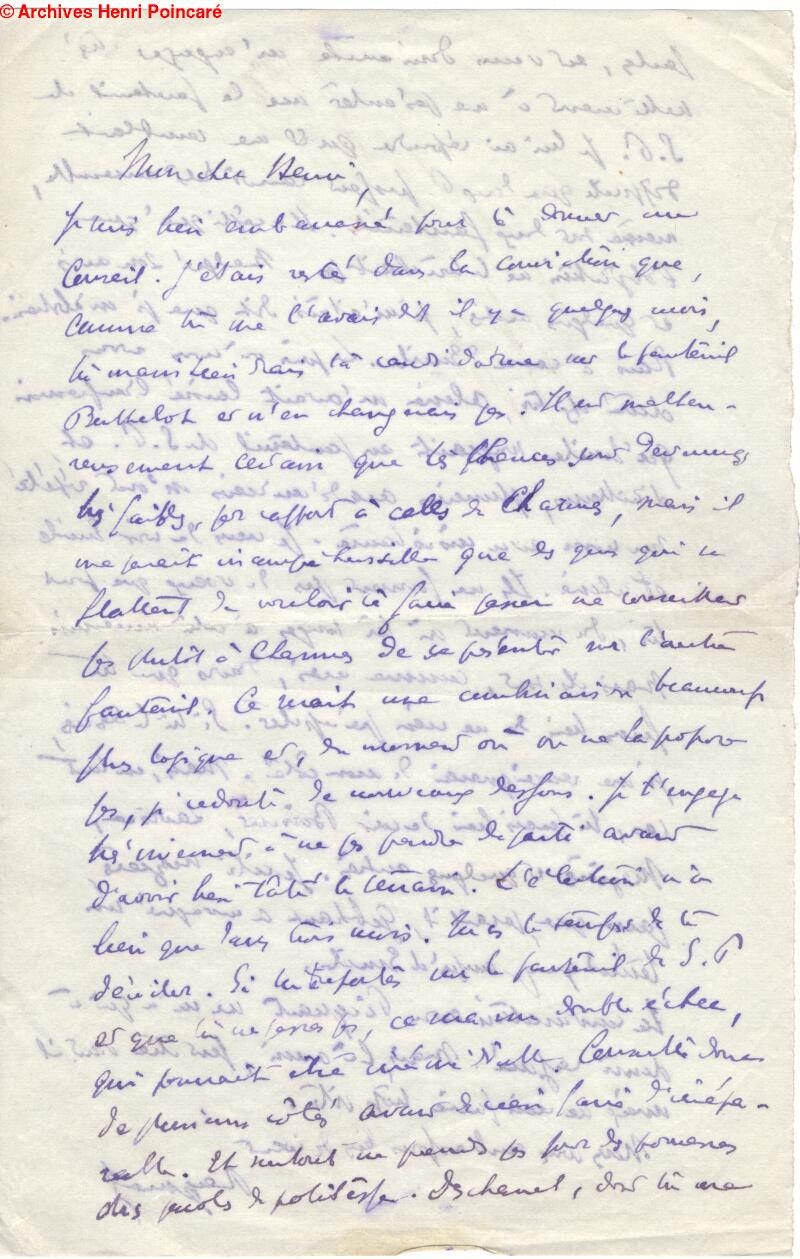 © Archives Henri Poincaré
Mon cher Henri,
Je suis bien embarrassé pour te donner un
Conseil. J'étais resté dans la conviction que,
comme tu me l'avais dit il y a quelques mois,
tu maintiendrais ta candidature sur le fauteuil
Berthelot et n'en changerais pas. Il est malheu-
reusement certain que tes chances sont devenues
très faibles, par rapport à celles de Charmes, mais il
me paraît incompréhensible que les gens qui se
flattent de vouloir te faire passer ne conseillent
pas plutôt à Charmes de se présenter sur l'autre
fauteuil. Ce serait une combinaison beaucoup
plus logique et, du moment où on ne la propose
pas, je redoute de nouveaux dessous. Je t'engage
très vivement à ne pas prendre de parti avant
d'avoir bien tâté le terrain. L'élection n'a
lieu que dans trois mois. Tu as le temps de te
décider. Si tu te portes sur le fauteuil de S. P
et que tu ne passes pas, ce serait un double échec,
qui pourrait être nuisible. Consulte donc
de plusieurs côtés avant de rien faire d'irrépa-
rable. Et surtout ne prends pas pour des promesses
des paroles de politesse. Deschanel, dont tu me